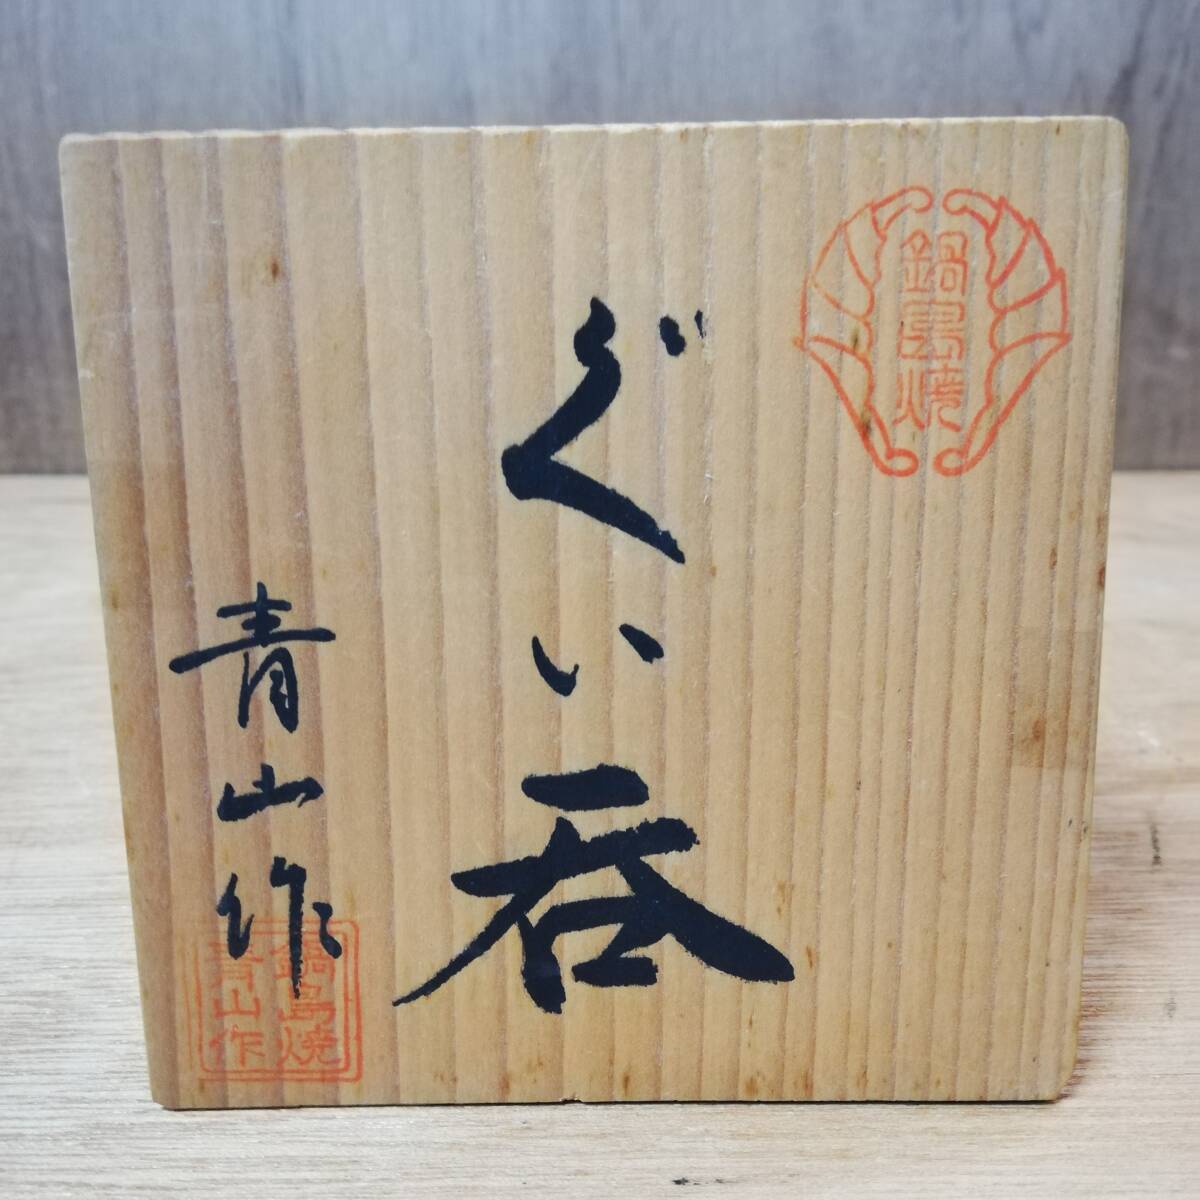 鍋島焼
ぐい呑
青山作
鍋島焼
青山作